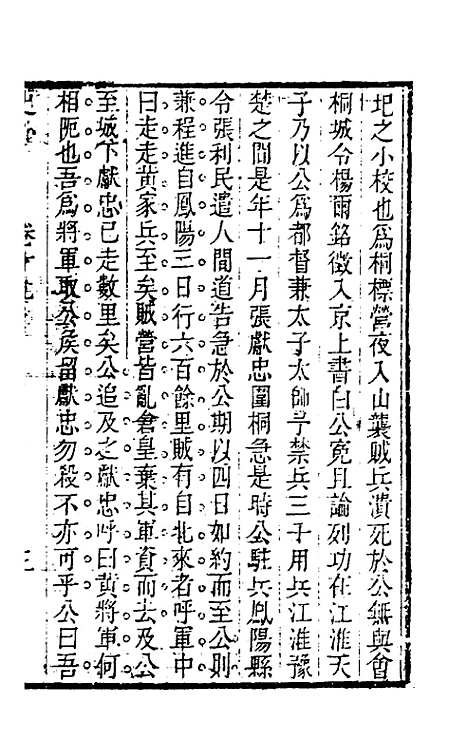 圯之小校也爲桐標營夜入山襲賊兵潰死於公無與會
桐城令楊爾銘徵入京上書白公寃且論列功在江淮天
子乃以公爲都督兼太子太師予禁兵三千用兵江淮豫
楚之間是年十一月張獻忠圍桐急是時公駐兵鳳陽縣
令張利民遣人間道告急於公期以四日如約而至公則
兼程進自鳳陽三日行六百餘里賊有自北來者呼軍中
曰走走黃家兵至矣賊營皆亂倉皇棄其軍資而去及公
至城下獻忠已走數里矣公追及之獻忠呼曰黃將軍何
相阨也吾爲將軍取公侯留獻忠勿殺不亦可乎公曰吾